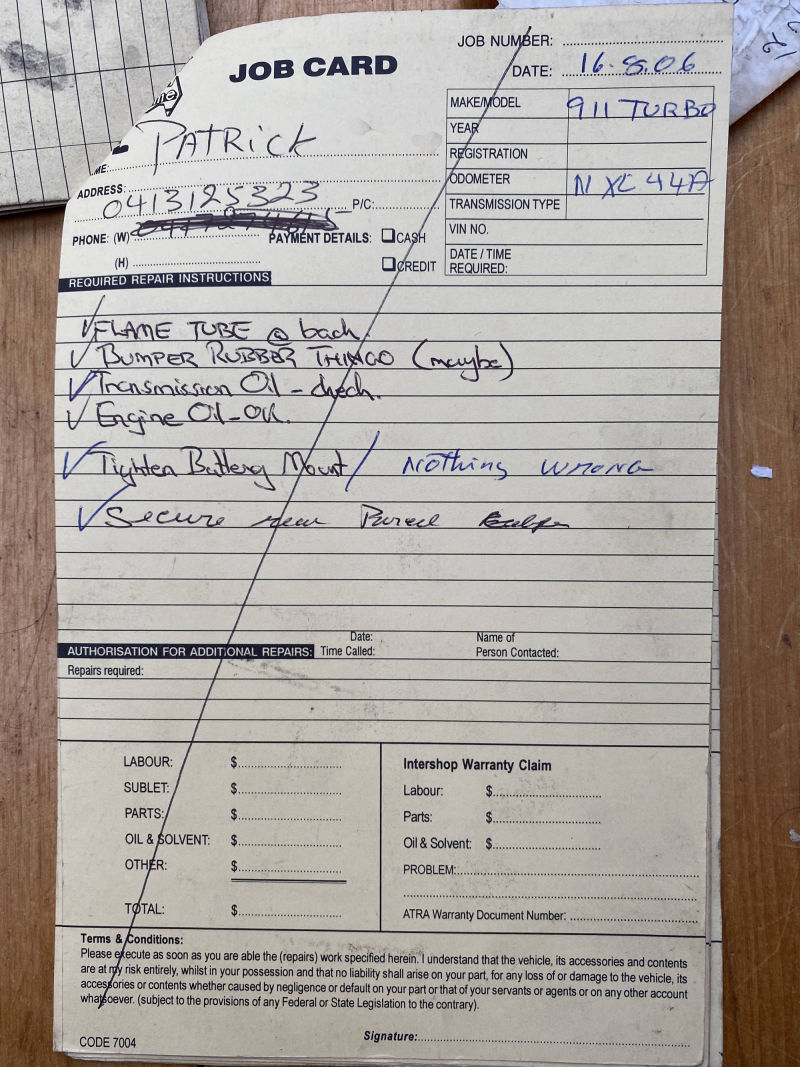 JOB CARD
JOB NUMBER:
DATE: 16.8.06
me
ME: PATRICK
ADDRESS:
0413125323 P/C:
PHONE: (W)
(H)
PAYMENT DETAILS: CASH
CREDIT
MAKE/MODEL 911 TURBO
YEAR
REGISTRATION
ODOMETER NXC 44A
TRANSMISSION TYPE
VIN NO.
DATE / TIME
REQUIRED:
REQUIRED REPAIR INSTRUCTIONS
✓ FLAME TUBE @ back.
✓ BUMPER RUBBER THINGO (maybe)
✓ Transmission Oil - check.
✓ Engine Oil - OK.
✓ Tighten Battery Mount / NOTHING WRONG
✓ Secure rear
AUTHORISATION FOR ADDITIONAL REPAIRS: Date:
Time Called:
Name of
Person Contacted:
Repairs required:
LABOUR: $
SUBLET: $
PARTS: $
OIL & SOLVENT: $
OTHER: $
TOTAL: $
Intershop Warranty Claim
Labour: $
Parts: $
Oil & Solvent: $
PROBLEM:
ATRA Warranty Document Number:
Terms & Conditions:
Please execute as soon as you are able the (repairs) work specified herein. I understand that the vehicle, its accessories and contents
are at my risk entirely, whilst in your possession and that no liability shall arise on your part, for any loss of or damage to the vehicle, its
accessories or contents whether caused by negligence or default on your part or that of your servants or agents or on any other account
whatsoever. (subject to the provisions of any Federal or State Legislation to the contrary).
Signature:
CODE 7004